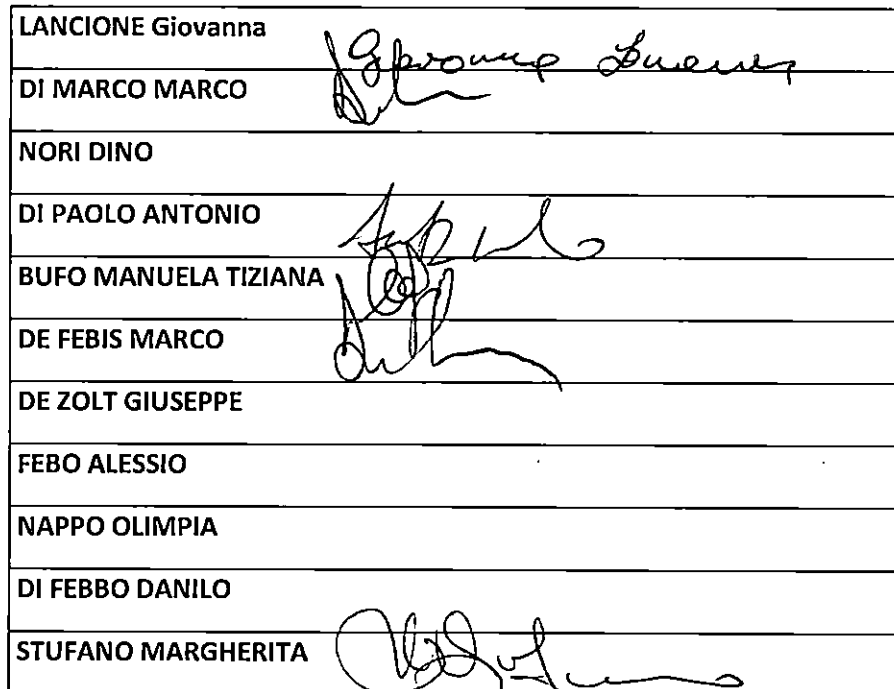 LANCIONE Giovanna
Giovanna
DI MARCO MARCO
NORI DINO
DI PAOLO ANTONIO
BUFO MANUELA TIZIANA
DE FEBIS MARCO
DE ZOLT GIUSEPPE
FEBO ALESSIO
NAPPO OLIMPIA
DI FEBBO DANILO
STUFANO MARGHERITA